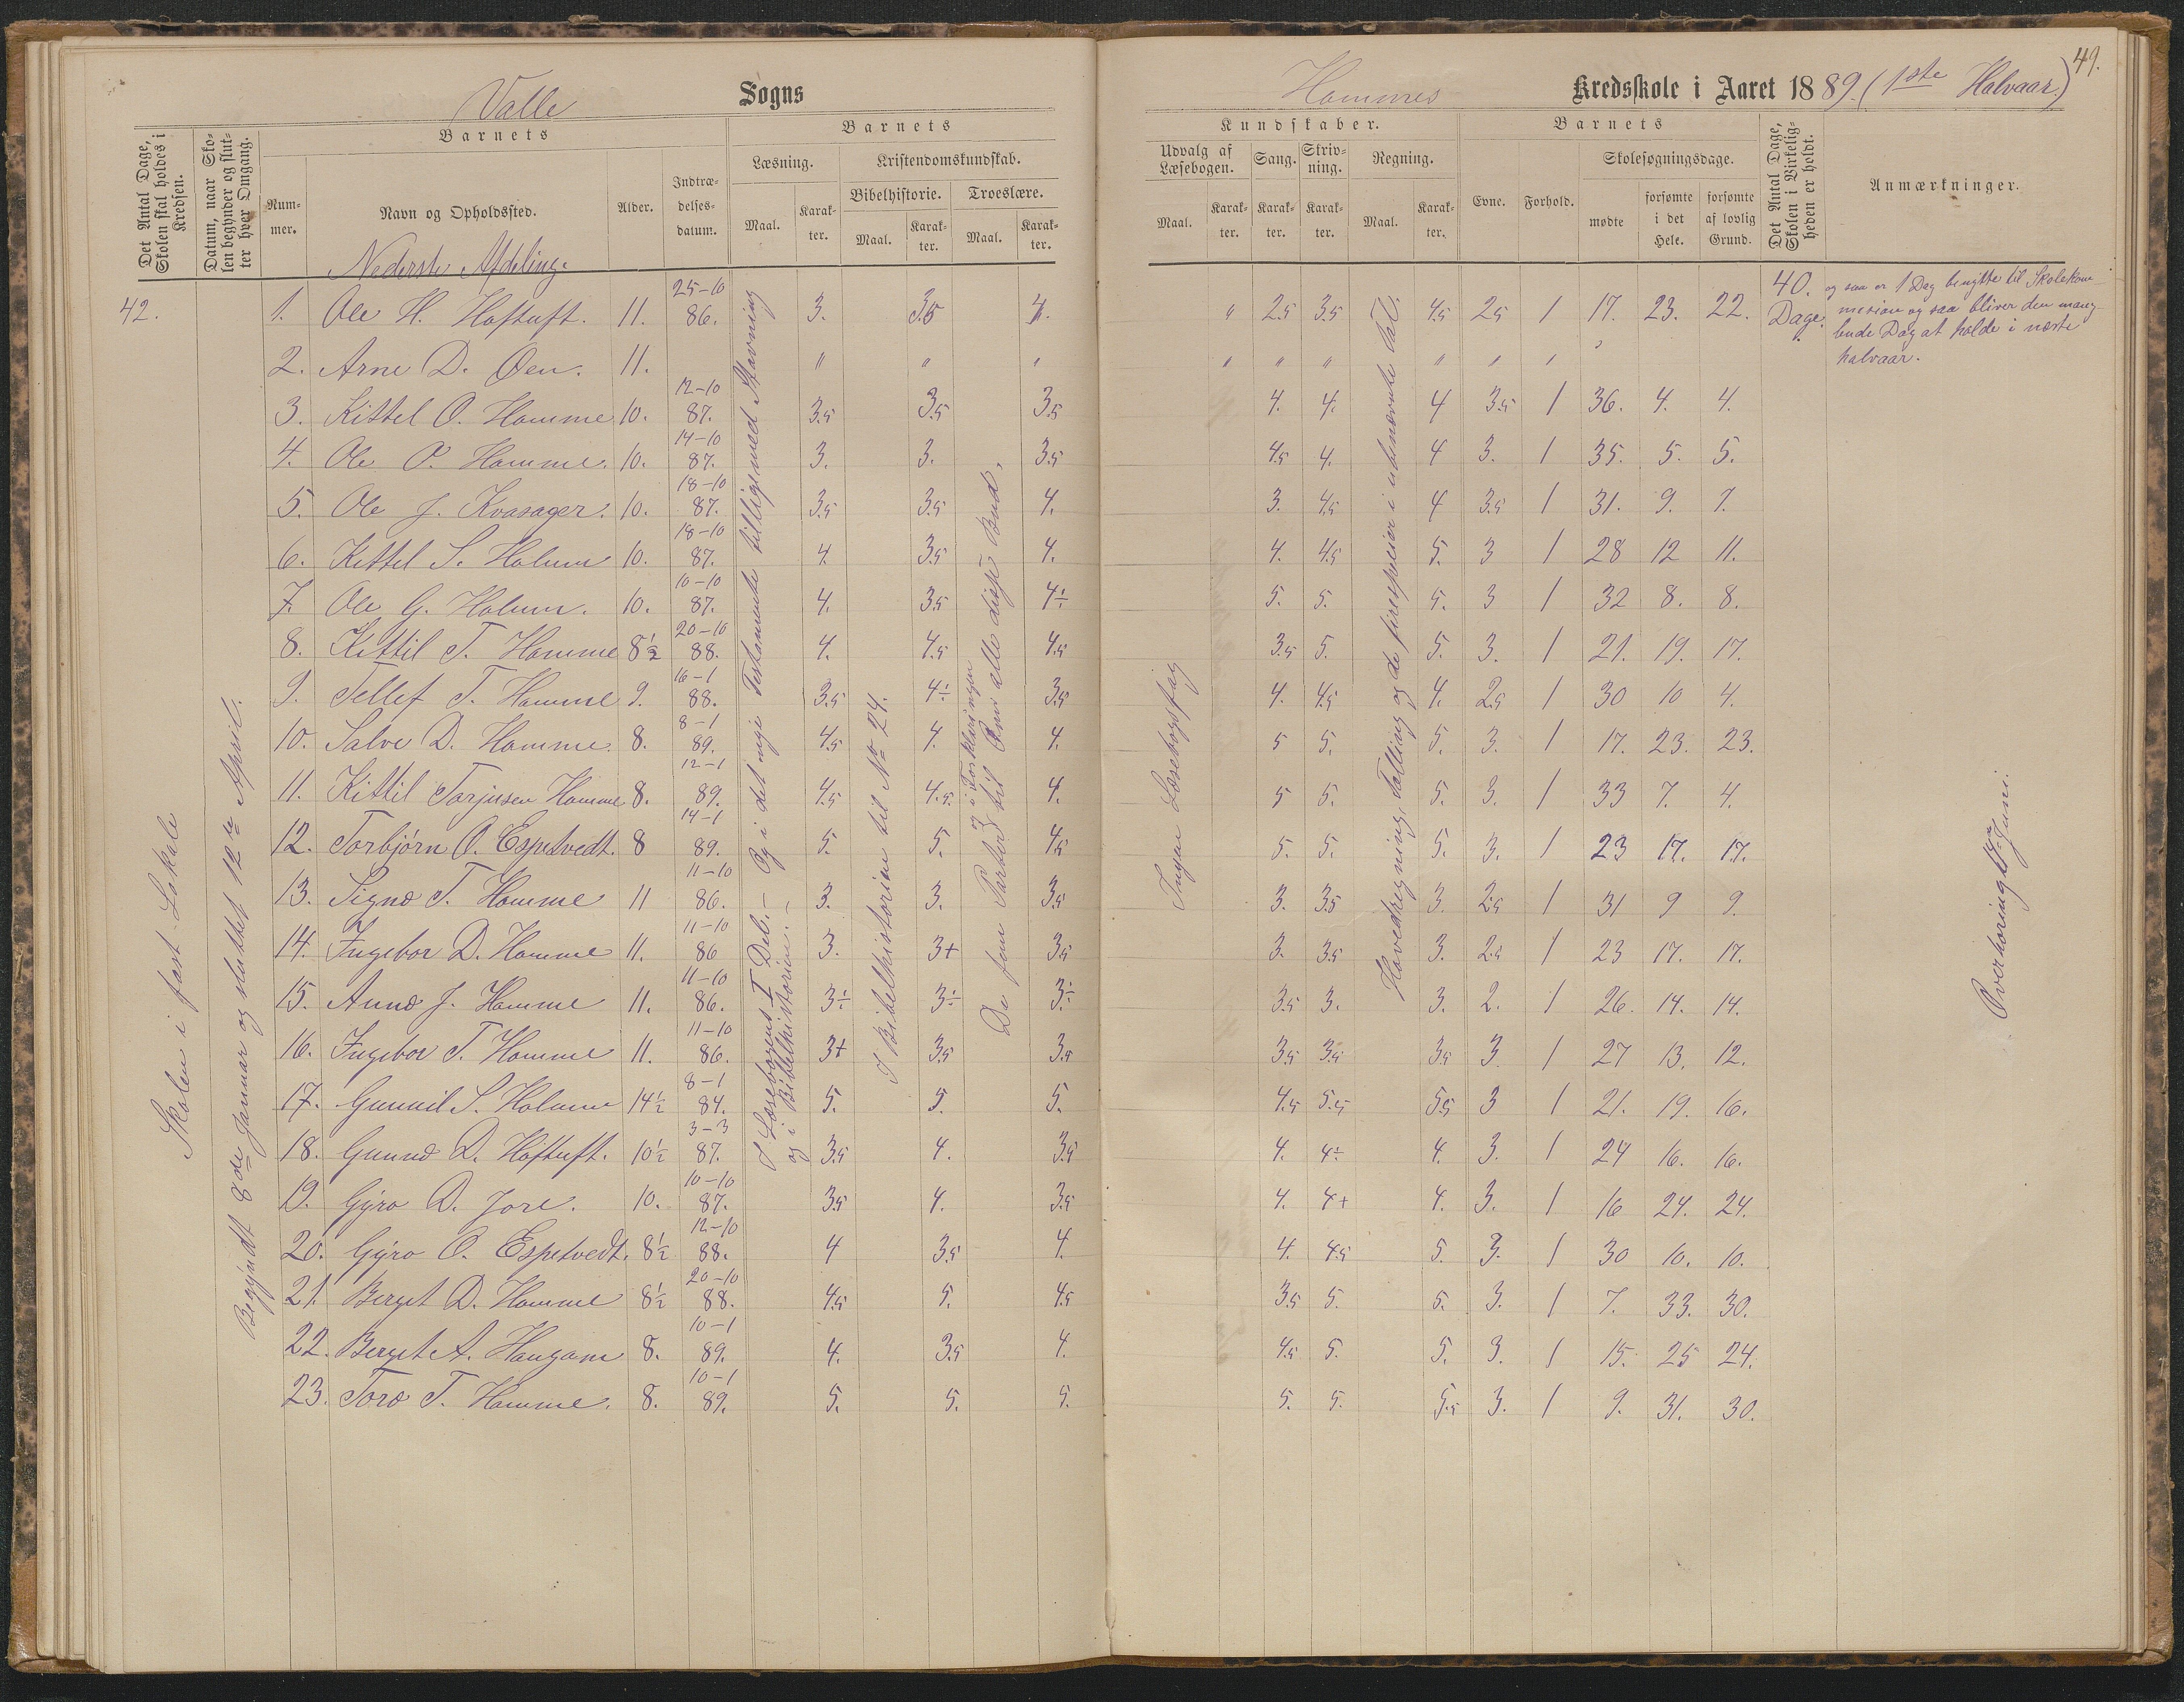 Valle Sogns
Det Antal Dage, Skolen skal holdes i Kredsen.
Datum, naar Skolen begynder og slutter hver Omgang.
Barnets
Nummer.
Navn og Opholdssted.
Alder.
Indtrædelsesdatum.
Barnets
Læsning.
Maal.
Karakter.
Kristendomskundskab.
Bibelhistorie.
Maal.
Karakter.
Troeslære.
Maal.
Karakter.
Nederste Afdeling.
42. 1. Ole H. Hoftuft. 11. 25-10 86. 3. 3.5 4.
2. Arne D. Øen. 11. " " "
3. Kittel O. Homme 10. 12-10 87. 3.5 3.5 3.5
4. Ole P. Homme. 10. 14-10 87. 3. 3. 3.5
5. Ole J. Kvasager. 10. 18-10 87. 3.5 3.5 4.
6. Kittel S. Holum 10. 18-10 87. 4. 3.5 4.
7. Ole G. Holum. 10. 10-10 87. 4. 3.5 4÷
8. Kittil T. Homme 8½ 20-10 88. 4. 4.5 4.5
9. Tellef T. Homme 9. 16-1 88. 3.5 4÷ 3.5
10. Salve D. Homme. 8. 8-1 89. 4.5 4. 4.
11. Kittil Torjusen Homme 8. 12-1 89. 4.5 4.5. 4.
12. Torbjörn O. Espetvedt. 8 14-1 89. 5. 5. 4.5
13. Signe T. Homme 11 11-10 86. 3. 3. 3.5
14. Ingebor D. Homme 11. 11-10 86 3. 3+ 3.5
15. Anne J. Homme 11. 11-10 86. 3÷ 3÷ 3÷
16. Ingebor T. Homme 11. 11-10 86. 3+ 3.5 3.5
17. Gunnil S. Holum 14½ 8-1 84. 5. 5. 5.
18. Gunne D. Hoftuft. 10½ 3-3 87. 3.5 4. 3.5
19. Gyro D. Jore. 10. 10-10 87. 3.5 4. 3.5
20. Gyro O. Espetvedt. 8½ 12-10 88. 4 3.5 4.
21. Berget D. Homme 8½ 20-10 88. 4.5 5. 4.5
22. Berget A. Haugann 8. 10-1 89. 4. 3.5 4.
23. Tore T. Homme. 8. 10-1 89. 5. 5. 5.
Skolen i fast Lokale
Begyndt 8de Januar og sluttet 12te April.
I Læsebogens I Del. – Og i det nye Testamente tilligemed Stavning
og i Bibelhistorien. –
I Bibelhistorien til No 24.
i Forklaringen
De fem Parter til Ømi alle disse Bud.
49.
Hommes Kredsskole i Aaret 1889. (1ste Halvaar)
Kundskaber.
Udvalg af Læsebogen.
Maal.
Karakter.
Sang.
Karakter.
Skrivning.
Karakter.
Regning.
Maal.
Karakter.
Barnets
Evne.
Forhold.
Skolesøgningsdage.
mødte
forsømte i det Hele.
forsømte af lovlig Grund.
Det Antal Dage, Skolen i Virkeligheden er holdt.
Anmærkninger.
" 2.5 3.5 4.5 2.5 1 17. 23. 22. 40. Dage.
" " " " " "
4. 4. 4 3.5 1 36. 4. 4.
4.5 4. 4 3. 1 35. 5. 5.
3. 4.5 4 3.5 1 31. 9. 7.
4. 4.5 5. 3 1 28 12 11.
5. 5. 5. 3 1 32 8. 8.
3.5 5. 5. 3. 1 21. 19. 17.
4. 4.5 4. 2.5 1 30 10 4.
5 5. 5. 3. 1 17. 23. 23.
5 5. 5. 3. 1 33 7. 4.
5. 5. 5. 3. 1 23 17. 17.
3. 3.5 3. 2.5 1 31 9 9.
3. 3.5 3. 2.5 1 23 17. 17.
3.5 3. 3. 2. 1 26. 14. 14.
3.5 3.5 3.5 3 1 27 13. 12.
4.5 5.5 5.5 3 1 21. 19. 16.
4. 4÷ 4. 3. 1 24 16. 16.
4. 4+ 4. 3. 1 16 24. 24.
4. 4.5 5. 3. 1 30 10. 10.
3.5 5. 5. 3. 1 7. 33. 30.
4.5 5. 5. 3. 1 15. 25 24.
5. 5. 5.5 3. 1 9. 31. 30.
og saa er 1 Dag benyttet til Skolekom-
mision og saa bliver den mang-
lende Dag at holde i næste
halvaar.
Ingen Læsebogsfag
Hovedregning, Tælling og de firespecier i ubenævnte Tal.
Overhöring Juni.